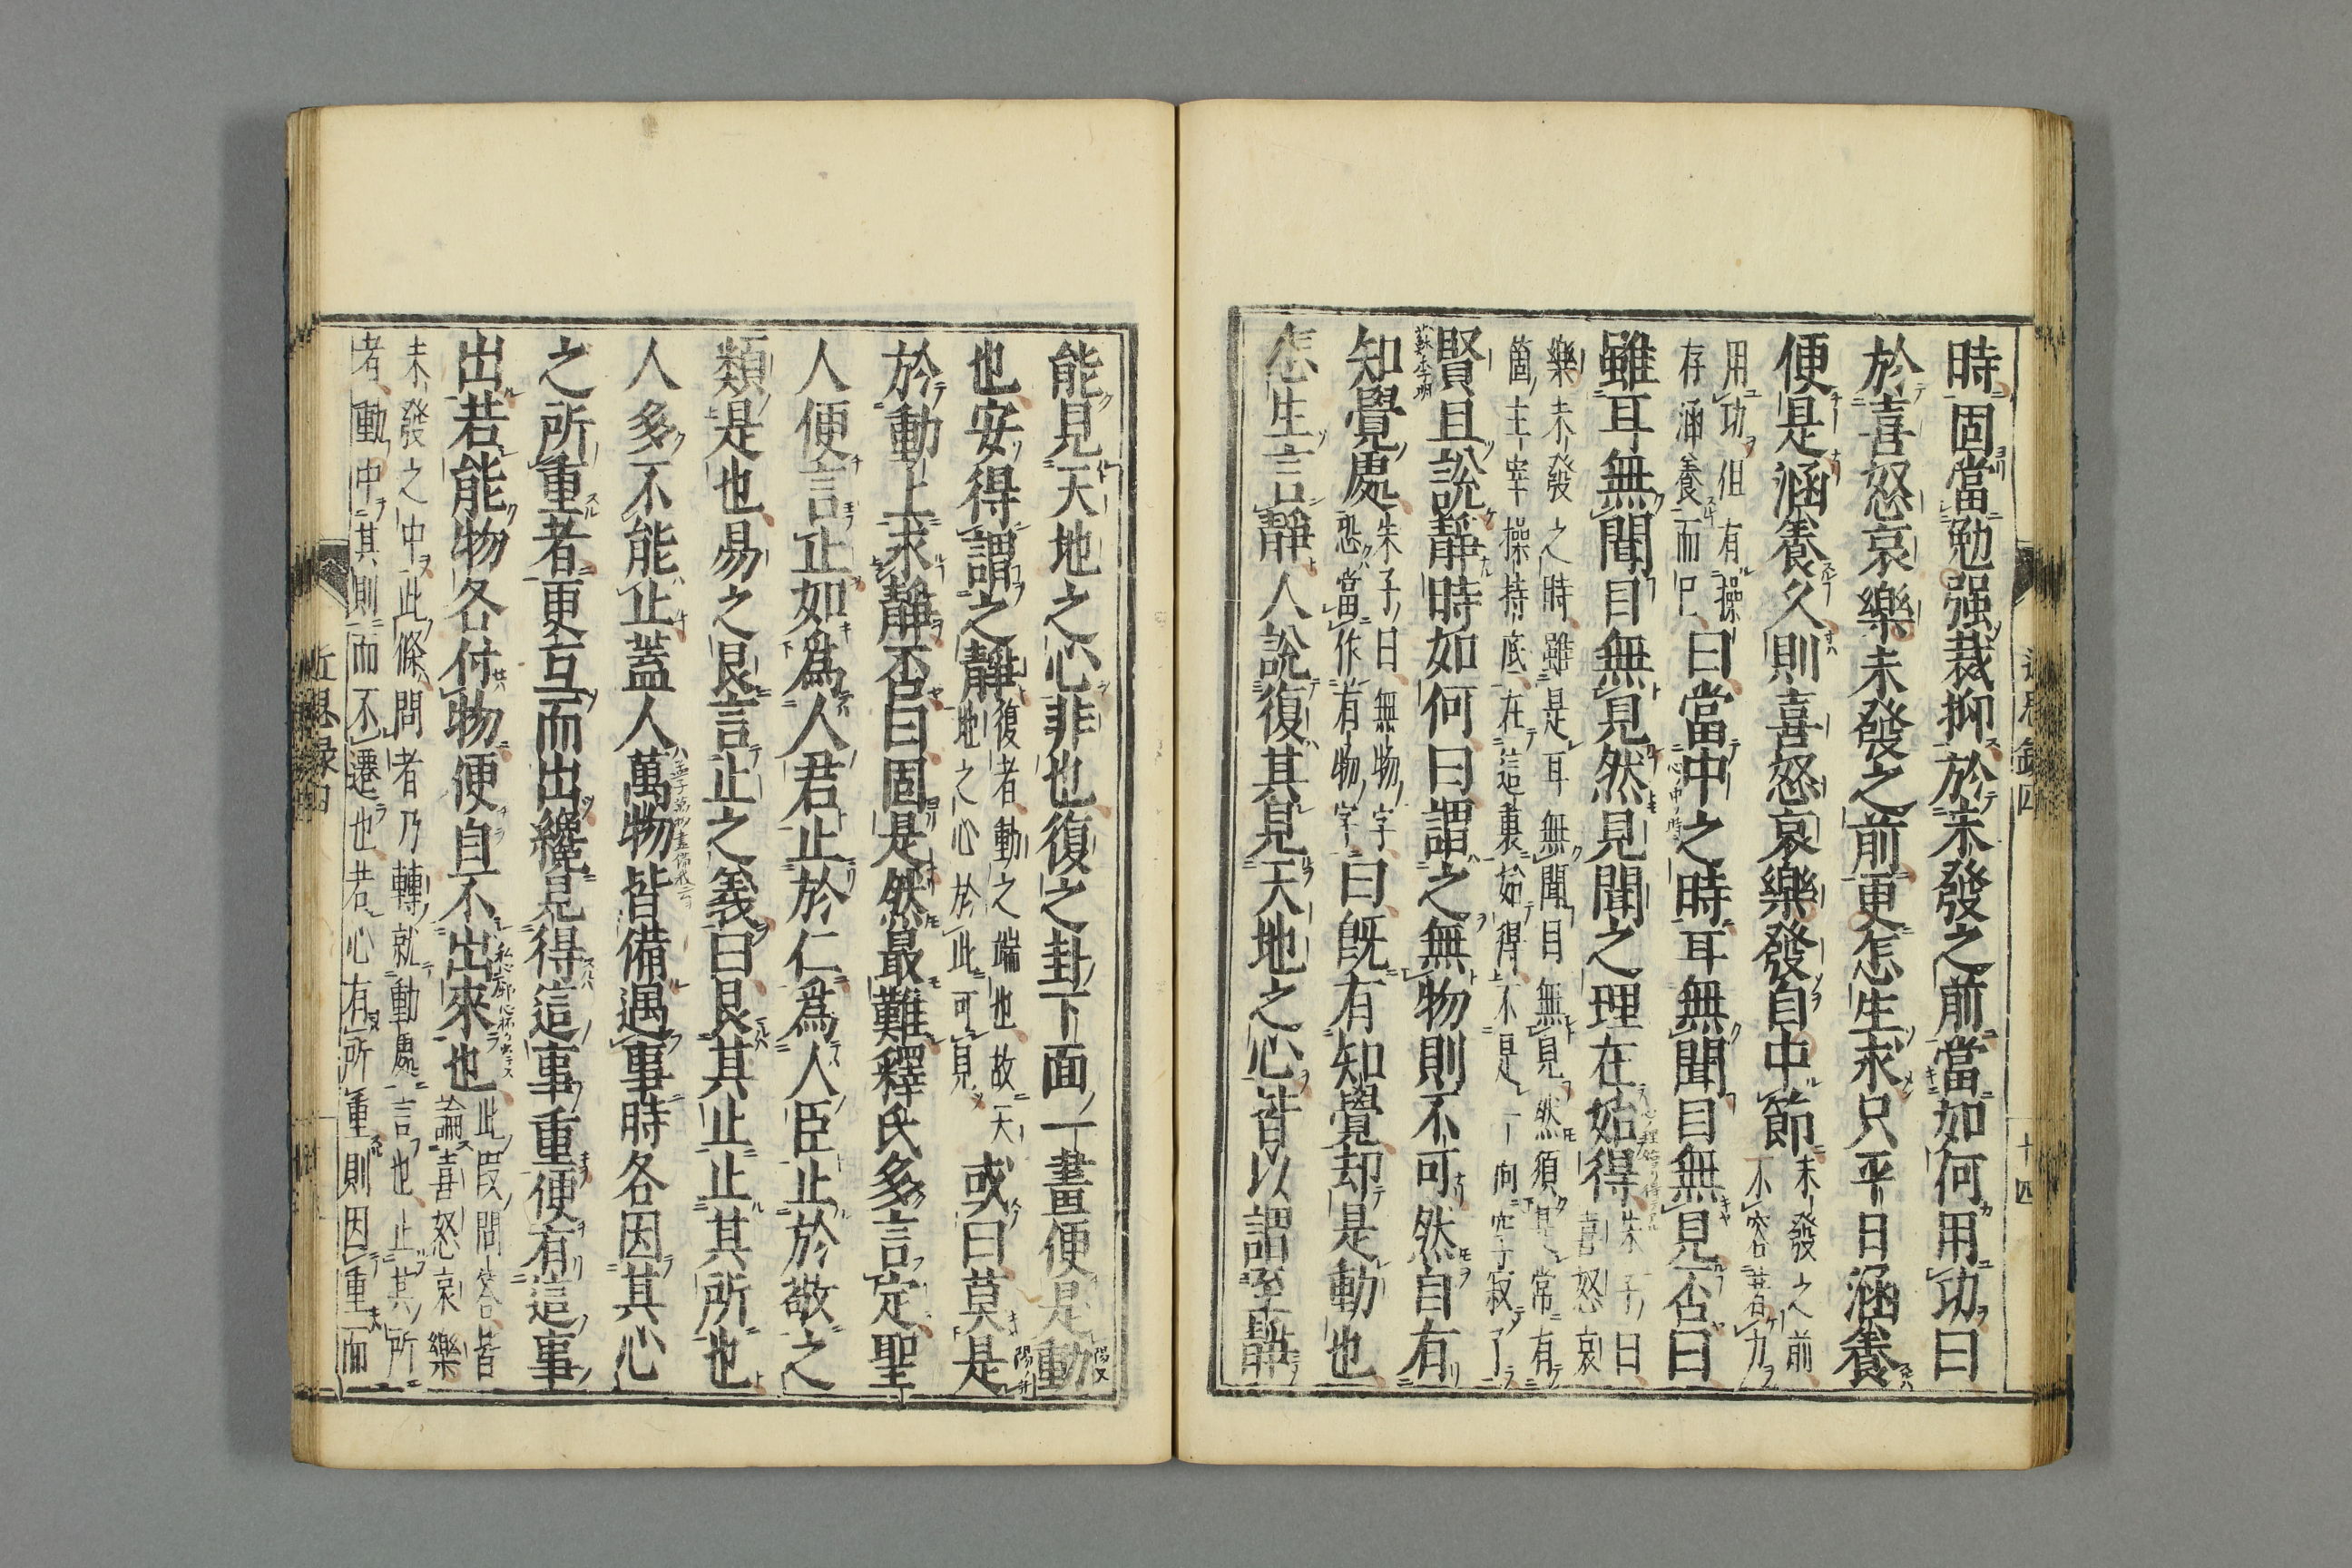 時固當勉强裁抑於未發之前當如何用功曰
於喜怒哀樂未發之前更怎生求只平日涵養
便是涵養久則喜怒哀樂發自中節未發之前
不容著力
用功但有操
存涵養而已曰當中之時耳無聞目無見否曰
雖耳無聞目無見然見聞之理在始得朱子曰
喜怒哀
樂未發之時雖是耳無聞目無見然須是常有
箇主宰操持底在這裏始得不是一向空寂了
賢且說靜時如何曰謂之無物則不可然自有
蘇季明
知覺處朱子曰無物字
恐當作有物字曰旣有知覺却是動也
怎生言靜人說復其見天地之心皆以謂至靜
近思錄四
十四
能見天地之心非也復之卦下面一畫便是動
也安得謂之靜復者動之端也故天
地之心於此可見或曰莫是
於動上求靜否曰固是然最難釋氏多言定聖
人便言止如爲人君止於仁爲人臣止於敬之
類是也易之艮言止之義曰艮其止止其所也
人多不能止蓋人萬物皆備遇事時各因其心
之所重者更互而出纔見得這事重便有這事
出若能物各付物便自不出來也此段問答皆
論喜怒哀樂
未發之中此條問者乃轉就動處言也止其所
者動中其則而不遷也若心有所重則因重而
近思録四